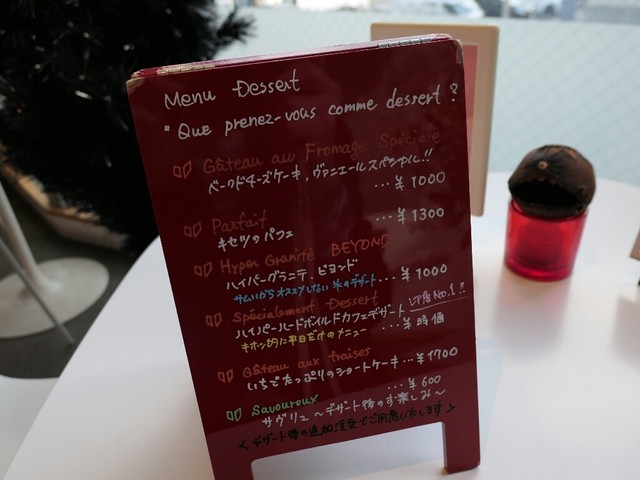 Menu Dessert
"Que prenez-vous comme dessert ?
Gâteau au Fromage Spéciale
ベークドチーズケーキ、ヴァニエールスペシャル!!
...¥1000
Parfait ...¥1300
キセツのパフェ
Hyper Granité BEYOND
ハイパーグラニテ、ビヨンド
サムいからオススメしない 氷のデザート ...¥1000
Spécialement Dessert
ハイパーハードボイルドカフェデザート
キホン的に平日だけのメニュー ...¥時価
Gâteau aux fraises
いちごたっぷりのショートケーキ...¥1700
Savoureux ...¥600
サヴリュ〜デザート後のお楽しみ〜
<デザート後の追加注文でご用意いたします>